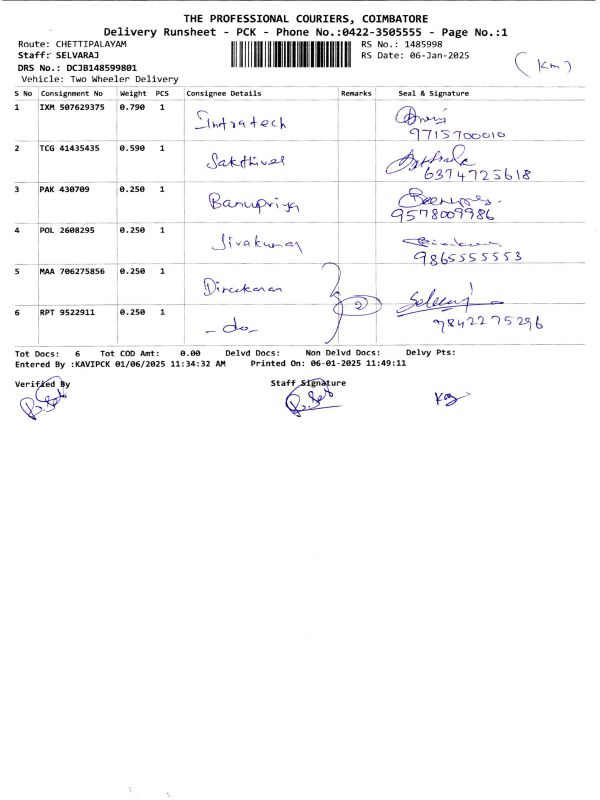 THE PROFESSIONAL COURIERS, COIMBATORE
Delivery Runsheet - PCK - Phone No.:0422-3505555 - Page No.:1
Route: CHETTIPALAYAM RS No.: 1485998
Staff: SELVARAJ RS Date: 06-Jan-2025
(Km)
DRS No.: DCJB148599801
Vehicle: Two Wheeler Delivery
S No Consignment No Weight PCS Consignee Details Remarks Seal & Signature
1 IXM 507629375 0.790 1 Sintratech
9715700010
2 TCG 41435435 0.590 1 Sakthivel
6374725618
3 PAK 430709 0.250 1 Banupriya
9578009986
4 POL 2608295 0.250 1 Sivakumar
9865555553
5 MAA 706275856 0.250 1
2
6 RPT 9522911 0.250 1 -do-
9842275296
Tot Docs: 6 Tot COD Amt: 0.00 Delvd Docs: Non Delvd Docs: Delvy Pts:
Entered By :KAVIPCK 01/06/2025 11:34:32 AM Printed On: 06-01-2025 11:49:11
Verified By Staff Signature